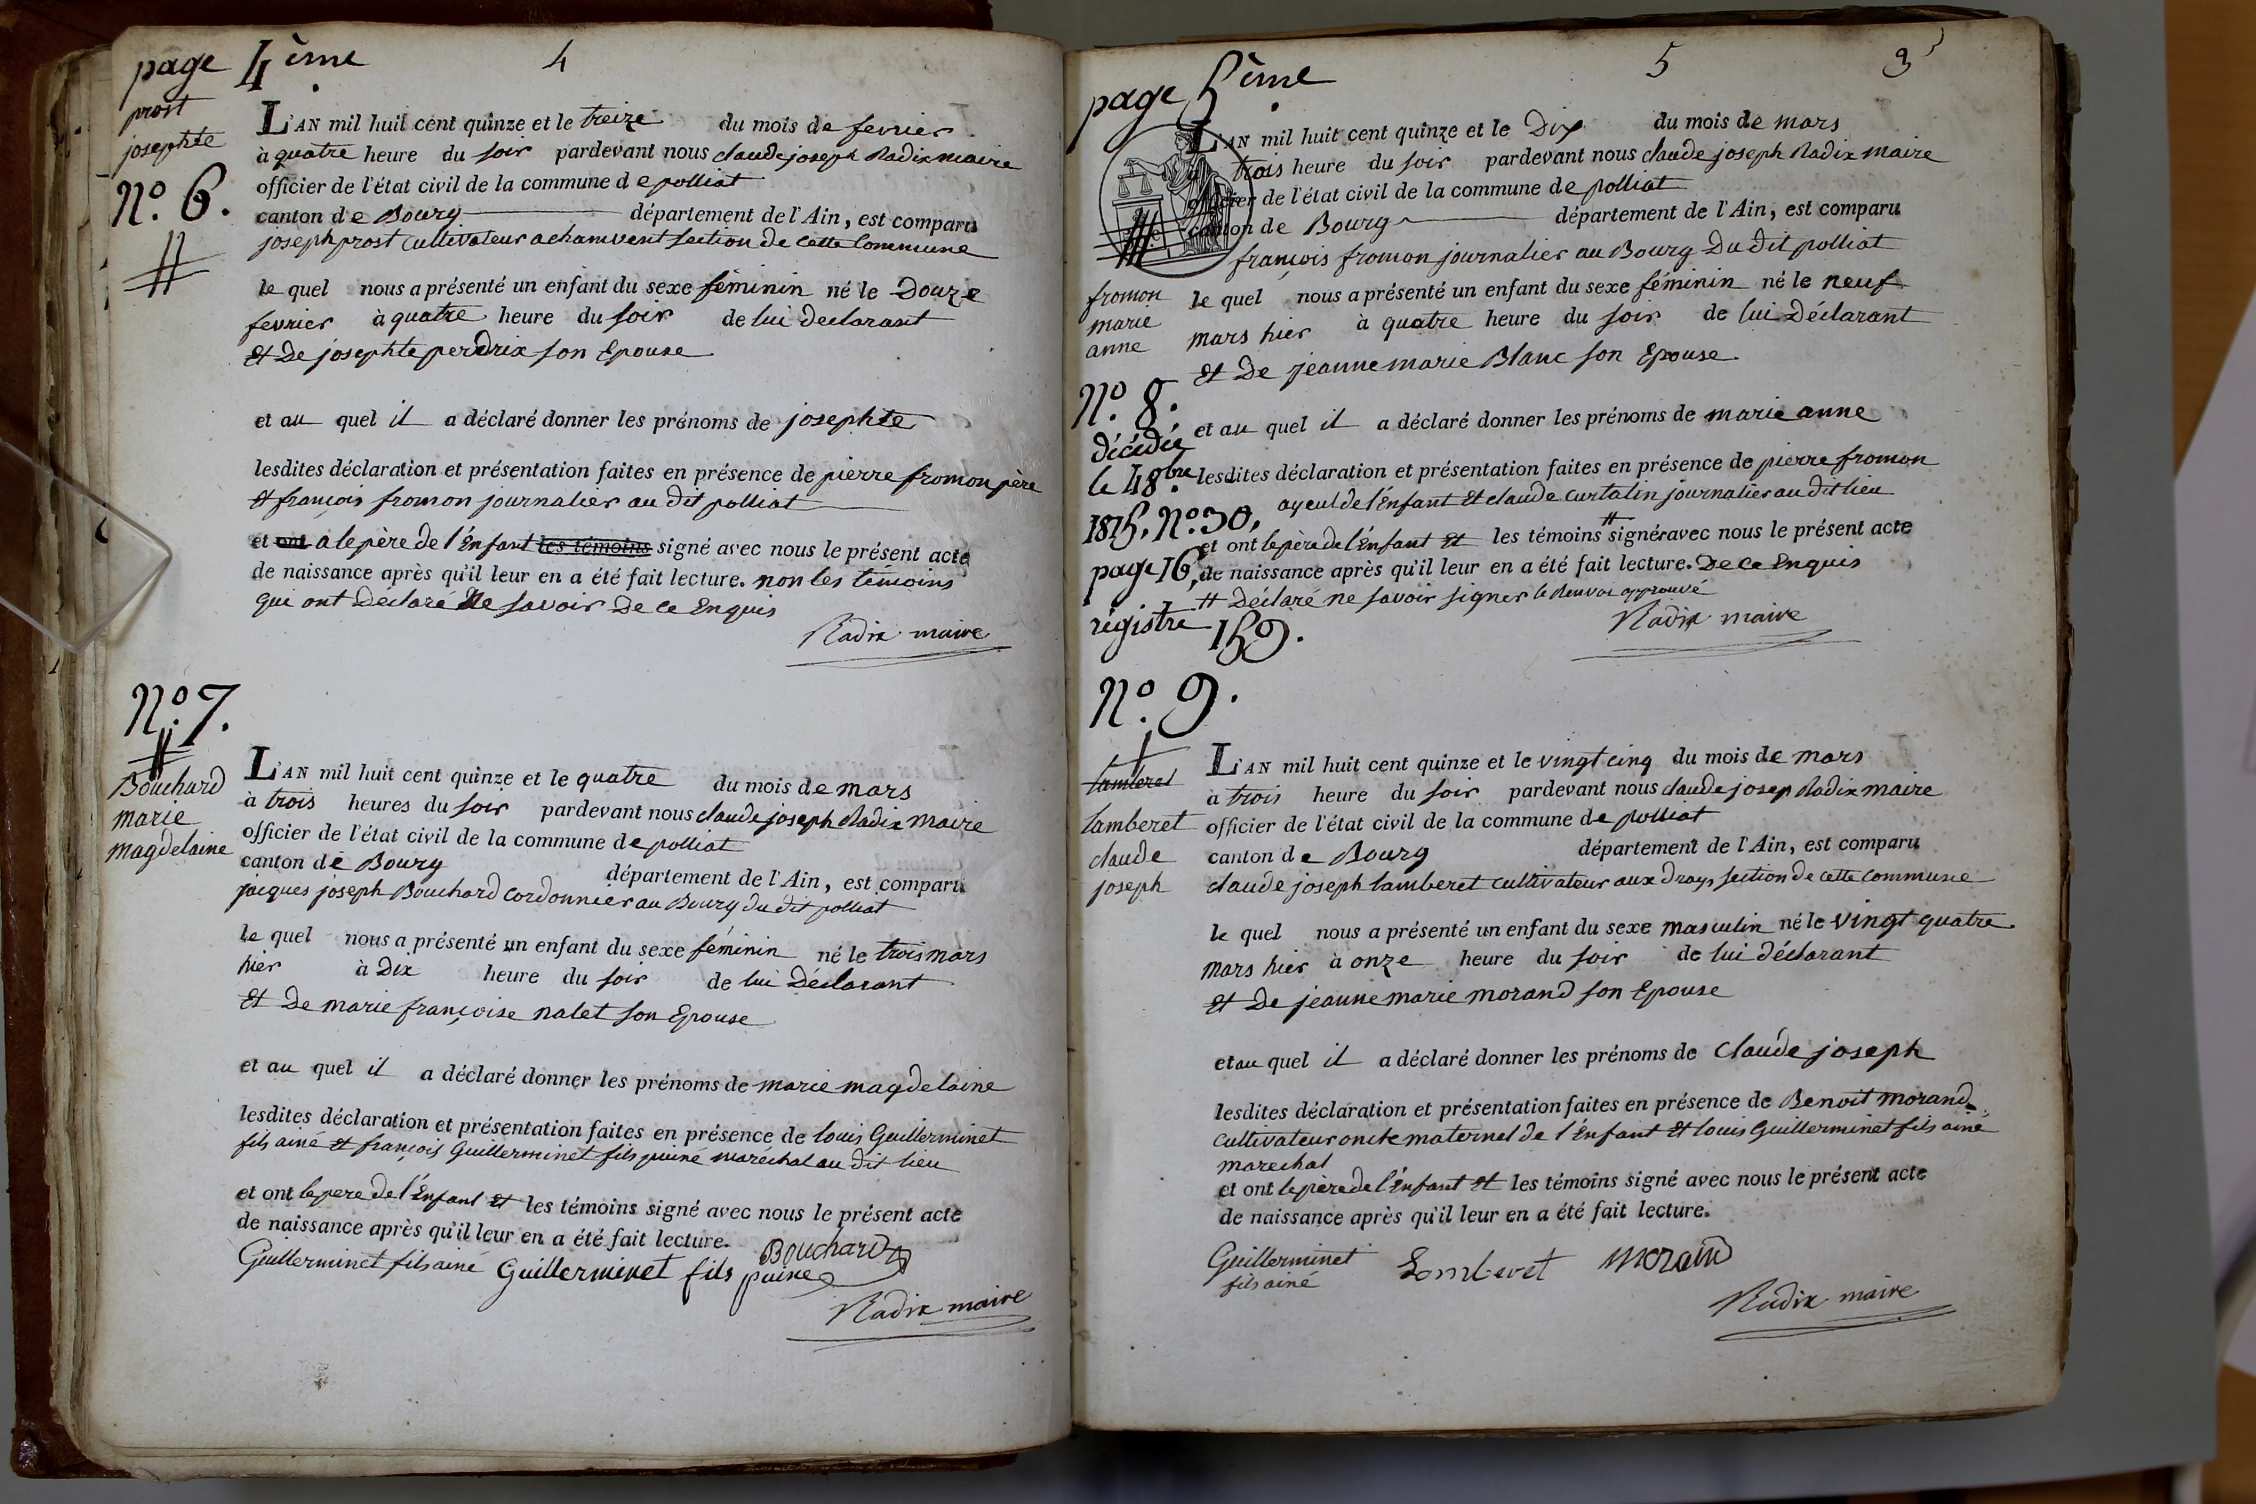 page 4ème
4
prost
josephte
N.º 6.
L'AN mil huit cent quinze et le treize du mois de fevrier
à quatre heure du soir pardevant nous claude joseph Radix maire
officier de l'état civil de la commune de polliat
canton de Bourg département de l'Ain, est comparu
joseph prost cultivateur a chamvent section de cette Commune
le quel nous a présenté un enfant du sexe féminin né le Douze
fevrier à quatre heure du soir de lui declarant
Et De josephte perdrix son Epouse
et au quel il a déclaré donner les prénoms de josephte
lesdites déclaration et présentation faites en présence de pierre fromon père
et françois fromon journalier au dit polliat
et ont a le père de l'Enfant les témoins signé avec nous le présent acte
de naissance après qu'il leur en a été fait lecture. non les témoins
qui ont Déclaré Ne savoir De ce Enquis
Radix maire
N.º 7.
Bouchard
marie
magdelaine
L'AN mil huit cent quinze et le quatre du mois de mars
à trois heures du soir pardevant nous claude joseph Radix Maire
officier de l'état civil de la commune de polliat
canton de Bourg département de l'Ain, est comparu
jacques joseph Bouchard Cordonnier au Bourg du dit polliat
le quel nous a présenté un enfant du sexe féminin né le trois mars
hier à Dix heure du soir de lui Déclarant
Et De marie françoise nalet son Epouse
et au quel il a déclaré donner les prénoms de marie magdelaine
lesdites déclaration et présentation faites en présence de louis Guillerminet
fils ainé et françois Guillerminet fils puiné maréchal au dit lieu
et ont le pere de l'Enfant et les témoins signé avec nous le présent acte
de naissance après qu'il leur en a été fait lecture.
Bouchard
Guillerminet fils ainé Guillerminet fils puine
Radix maire
page 5ème
5
3
L'AN mil huit cent quinze et le Dix du mois de mars
à trois heure du soir pardevant nous claude joseph Radix maire
officier de l'état civil de la commune de polliat
canton de Bourg département de l'Ain, est comparu
françois fromon journalier au Bourg Du dit polliat
fromon
marie
anne
le quel nous a présenté un enfant du sexe féminin né le neuf
mars hier à quatre heure du soir de lui Déclarant
Et De jeanne marie Blanc son Epouse
N.º 8.
décédée
le 4 8bre
1815, N.º 30,
page 16,
régistre 159.
et au quel il a déclaré donner les prénoms de marie anne
lesdites déclaration et présentation faites en présence de pierre fromon
ayeul de l'Enfant et claude curtalin journalier au dit lieu
et ont le père de l'Enfant et les témoins # signé avec nous le présent acte
de naissance après qu'il leur en a été fait lecture. De ce Enquis
# Déclaré ne savoir signer le Renvoi approuvé
Radix maire
N.º 9.
lamberet
lamberet
claude
joseph
L'AN mil huit cent quinze et le vingt cinq du mois de mars
à trois heure du soir pardevant nous claude josep Radix maire
officier de l'état civil de la commune de polliat
canton de Bourg département de l'Ain, est comparu
claude joseph lamberet cultivateur aux drays section de cette commune
le quel nous a présenté un enfant du sexe masculin né le vingt quatre
mars hier à onze heure du soir de lui déclarant
Et De jeanne marie morand son Epouse
et au quel il a déclaré donner les prénoms de Claude joseph
lesdites déclaration et présentation faites en présence de Benoit morand
cultivateur oncle maternel de l'Enfant et louis Guillerminet fils ainé
marechal
et ont le père de l'Enfant et les témoins signé avec nous le présent acte
de naissance après qu'il leur en a été fait lecture.
Guillerminet Lomberet morand
fils ainé
Radix maire